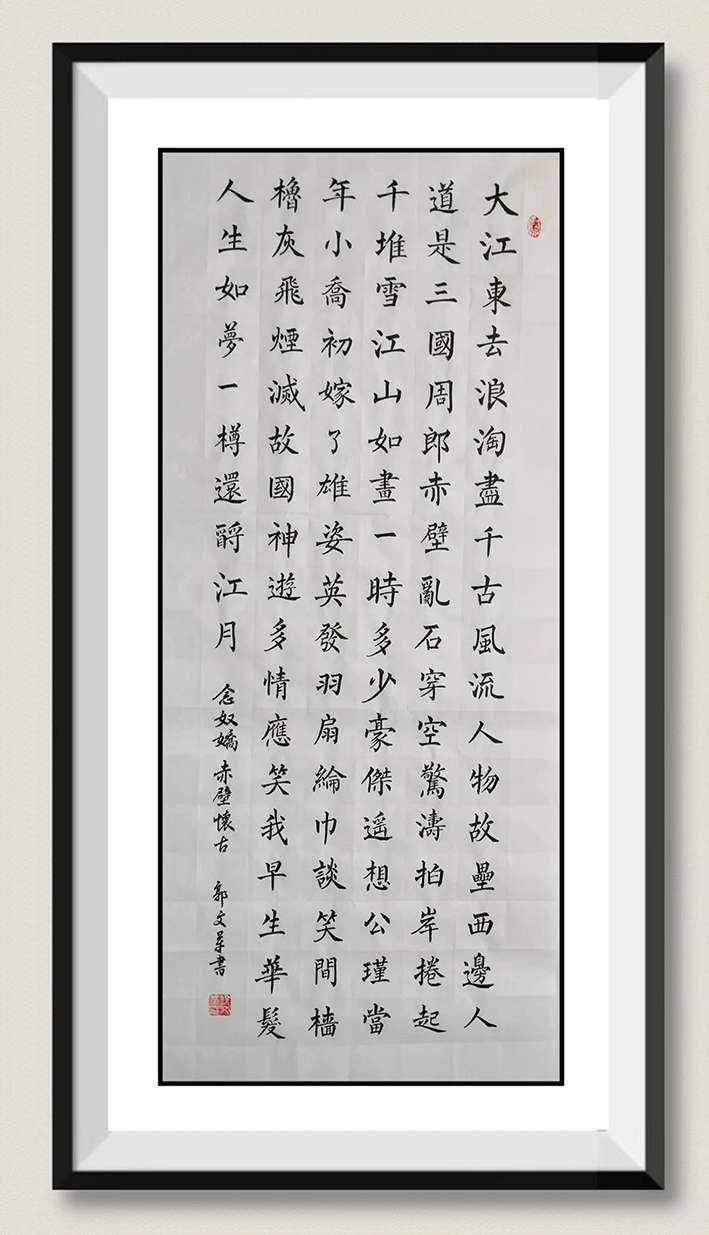 大江東去浪淘盡千古風流人物故壘西邊人
道是三國周郎赤壁亂石穿空驚濤拍岸捲起
千堆雪江山如畫一時多少豪傑遥想公瑾當
年小喬初嫁了雄姿英發羽扇綸巾談笑間檣
櫓灰飛煙滅故國神遊多情應笑我早生華髮
人生如夢一樽還酹江月 念奴嬌赤壁懷古 郭文書